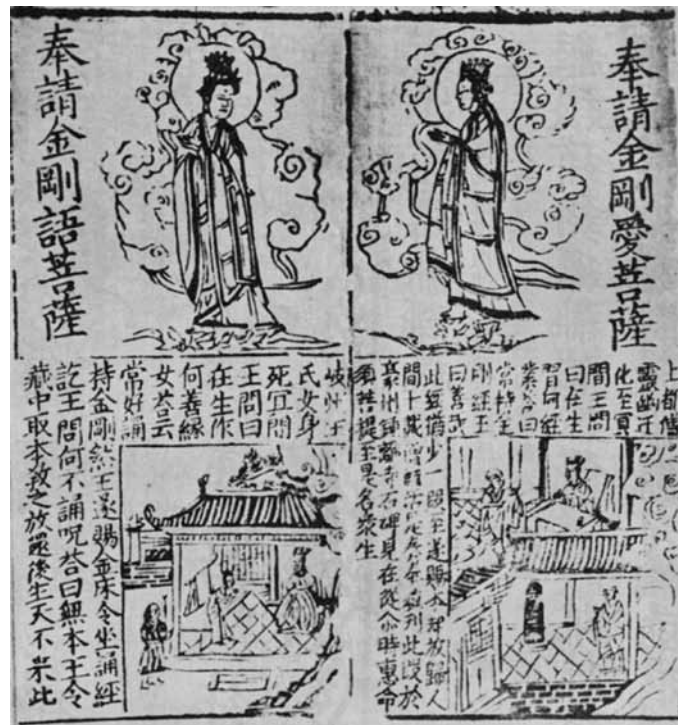 奉請金剛愛菩薩
上都僧
靈幽
化至冥
間王問
曰在生
習何經
業答曰
常持金
剛經王
曰善哉
此經猶少一偈王遂賜本却放歸人
間十載
濠州鍾離寺石碑見在從尒時惠命
須菩提至是名衆生
奉請金剛語菩薩
岐州王
氏女身
死冥間
王問曰
在生作
何善緣
女荅云
常好誦
持金剛經王遂賜金床令坐誦經
訖王問何不誦呪荅曰無本王令
藏中取本教之放還後生天不來此